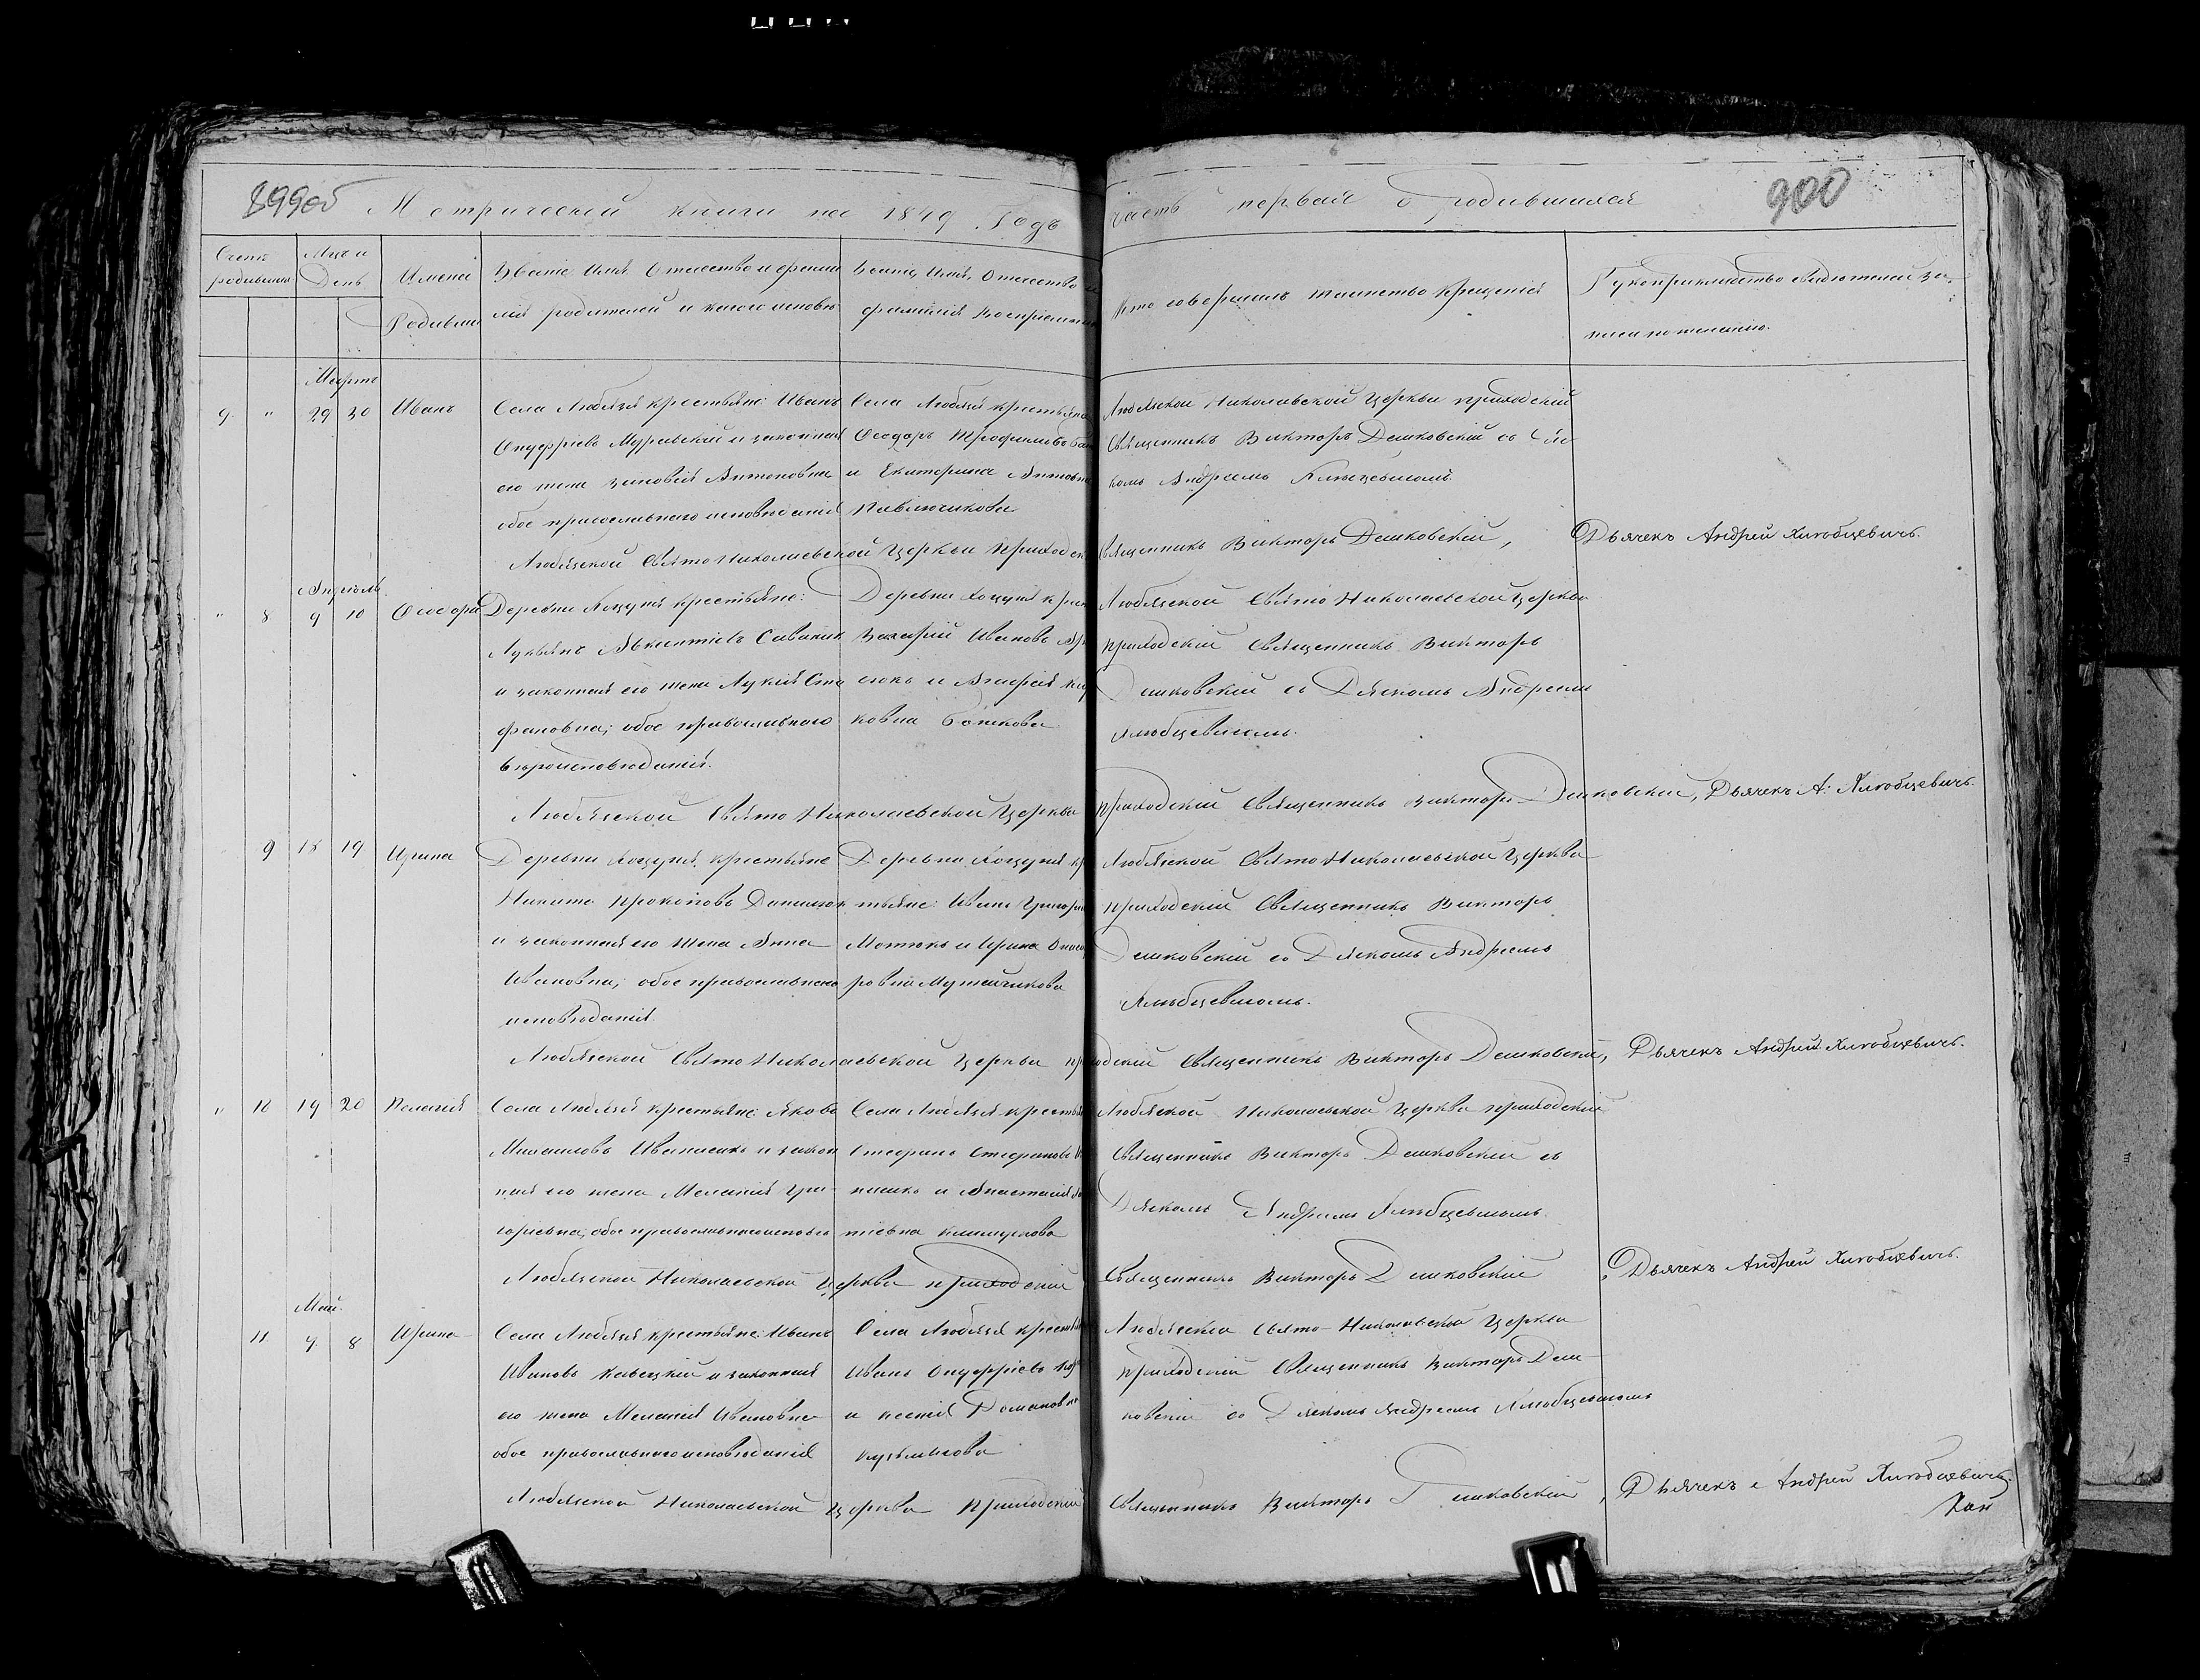 899об Метрической книги на 1849 Годъ
часть первая о родившихся 900
Счетъ родившихся
Мцъ и День
Имена Родивши
Званіе Имя Отчество и фами
лія родителей и какого исповѣ
Званіе, Имя, Отчество и
фамилія Воспріемник
Кто совершалъ таинство крещенія
Рукоприкладство свидѣтелей за-
писи по желанію.
Мартъ
9. " 29 30 Иванъ
Села Любязя крестьяне: Иванъ
Онуфріевъ Муравскій и законная
его жена Зиновія Антоновна
обое православнаго исповѣданія
Села Любязя крестьяне
Ѳеодоръ Трофимовъ
и Екатерина
Павлючикова
Любязской Николаевской Церкви приходскій
Священникъ Викторъ Дешковскій съ
комъ Андреемъ Хлюбцевичомъ
Любязской Свято Николаевской Церкви Приходск
Священникъ Викторъ Дешковскій,
Дьячекъ Андрей Хлюбцевичъ.
Апрѣль
" 8 9 10 Ѳеодора
Деревни Хоцуня крестьяне:
Лукьянъ Авксентіевъ Савонюк
и законная его жена Лукія Сте
фановна; обое православного
вѣроисповѣданія.
Деревни Хоцуня крес
Захарій Ивановъ
сюкъ и Агафія
ковна Божкова
Любязской Свято Николаевской Церкви
приходскій Священникъ Викторъ
Дешковскій съ Дячкомъ Андреем
Хлюбцевичомъ.
Любязской Свято Николаевской Церкви
приходскій Священникъ Викторъ Дешковскій, Дьячекъ А: Хлюбцевичъ.
9 18 19 Ирина
Деревни Хоцуня, крестьяне
Никита Прокоповъ Данилюк
и законная его жена Анна
Ивановна; обое православнаго
исповѣданія.
Деревни Хоцуня кр
тьяне: Иванъ Григорье
Мотюкъ и Ирина
ровна
Любязской Свято Николаевской Церкви
приходскій Священникъ Викторъ
Дешковскій съ Дячкомъ Андреемъ
Хлюбцевичомъ.
Любязской Свято Николаевской Церкви при
ходскій Священникъ Викторъ Дешковскій, Дьячекъ Андрей Хлюбцевичъ.
" 10 19 20 Пелагія
Села Любязя крестьяне: Яковъ
Михаиловъ Иванисикъ и закон
ная его жена Меланія Гри-
горьевна; обое православнаго исповѣ
Села Любязя крестья
Стефанъ Стефановъ
никъ и Анастасія
тіевна Климукова
Любязской Николаевской Церкви приходскій
Священникъ Викторъ Дешковскій съ
Дячкомъ Андреемъ Хлюбцевичомъ.
Любязской Николаевской Церкви приходскій
Священникъ Викторъ Дешковскій
Дьячекъ Андрей Хлюбцевичъ.
Май.
11. 7. 8 Ирина
Села Любязя крестьяне: Иванъ
Ивановъ Кавецкій и законная
его жена Меланія Ивановна
обое православнаго исповѣданія
Села Любязя крестья
Иванъ Онуфріевъ
и Ксенія Романовна
Кузьмичова
Любязской Свято-Николаевской Церкви
приходскій Священникъ Викторъ Деш
ковскій съ Дячкомъ Андреемъ Хлюбцевичомъ
Любязской Николаевской Церкви Приходскій
Священникъ Викторъ Дешковскій, Дьячекъ Андрей Хлюбцевичъ.